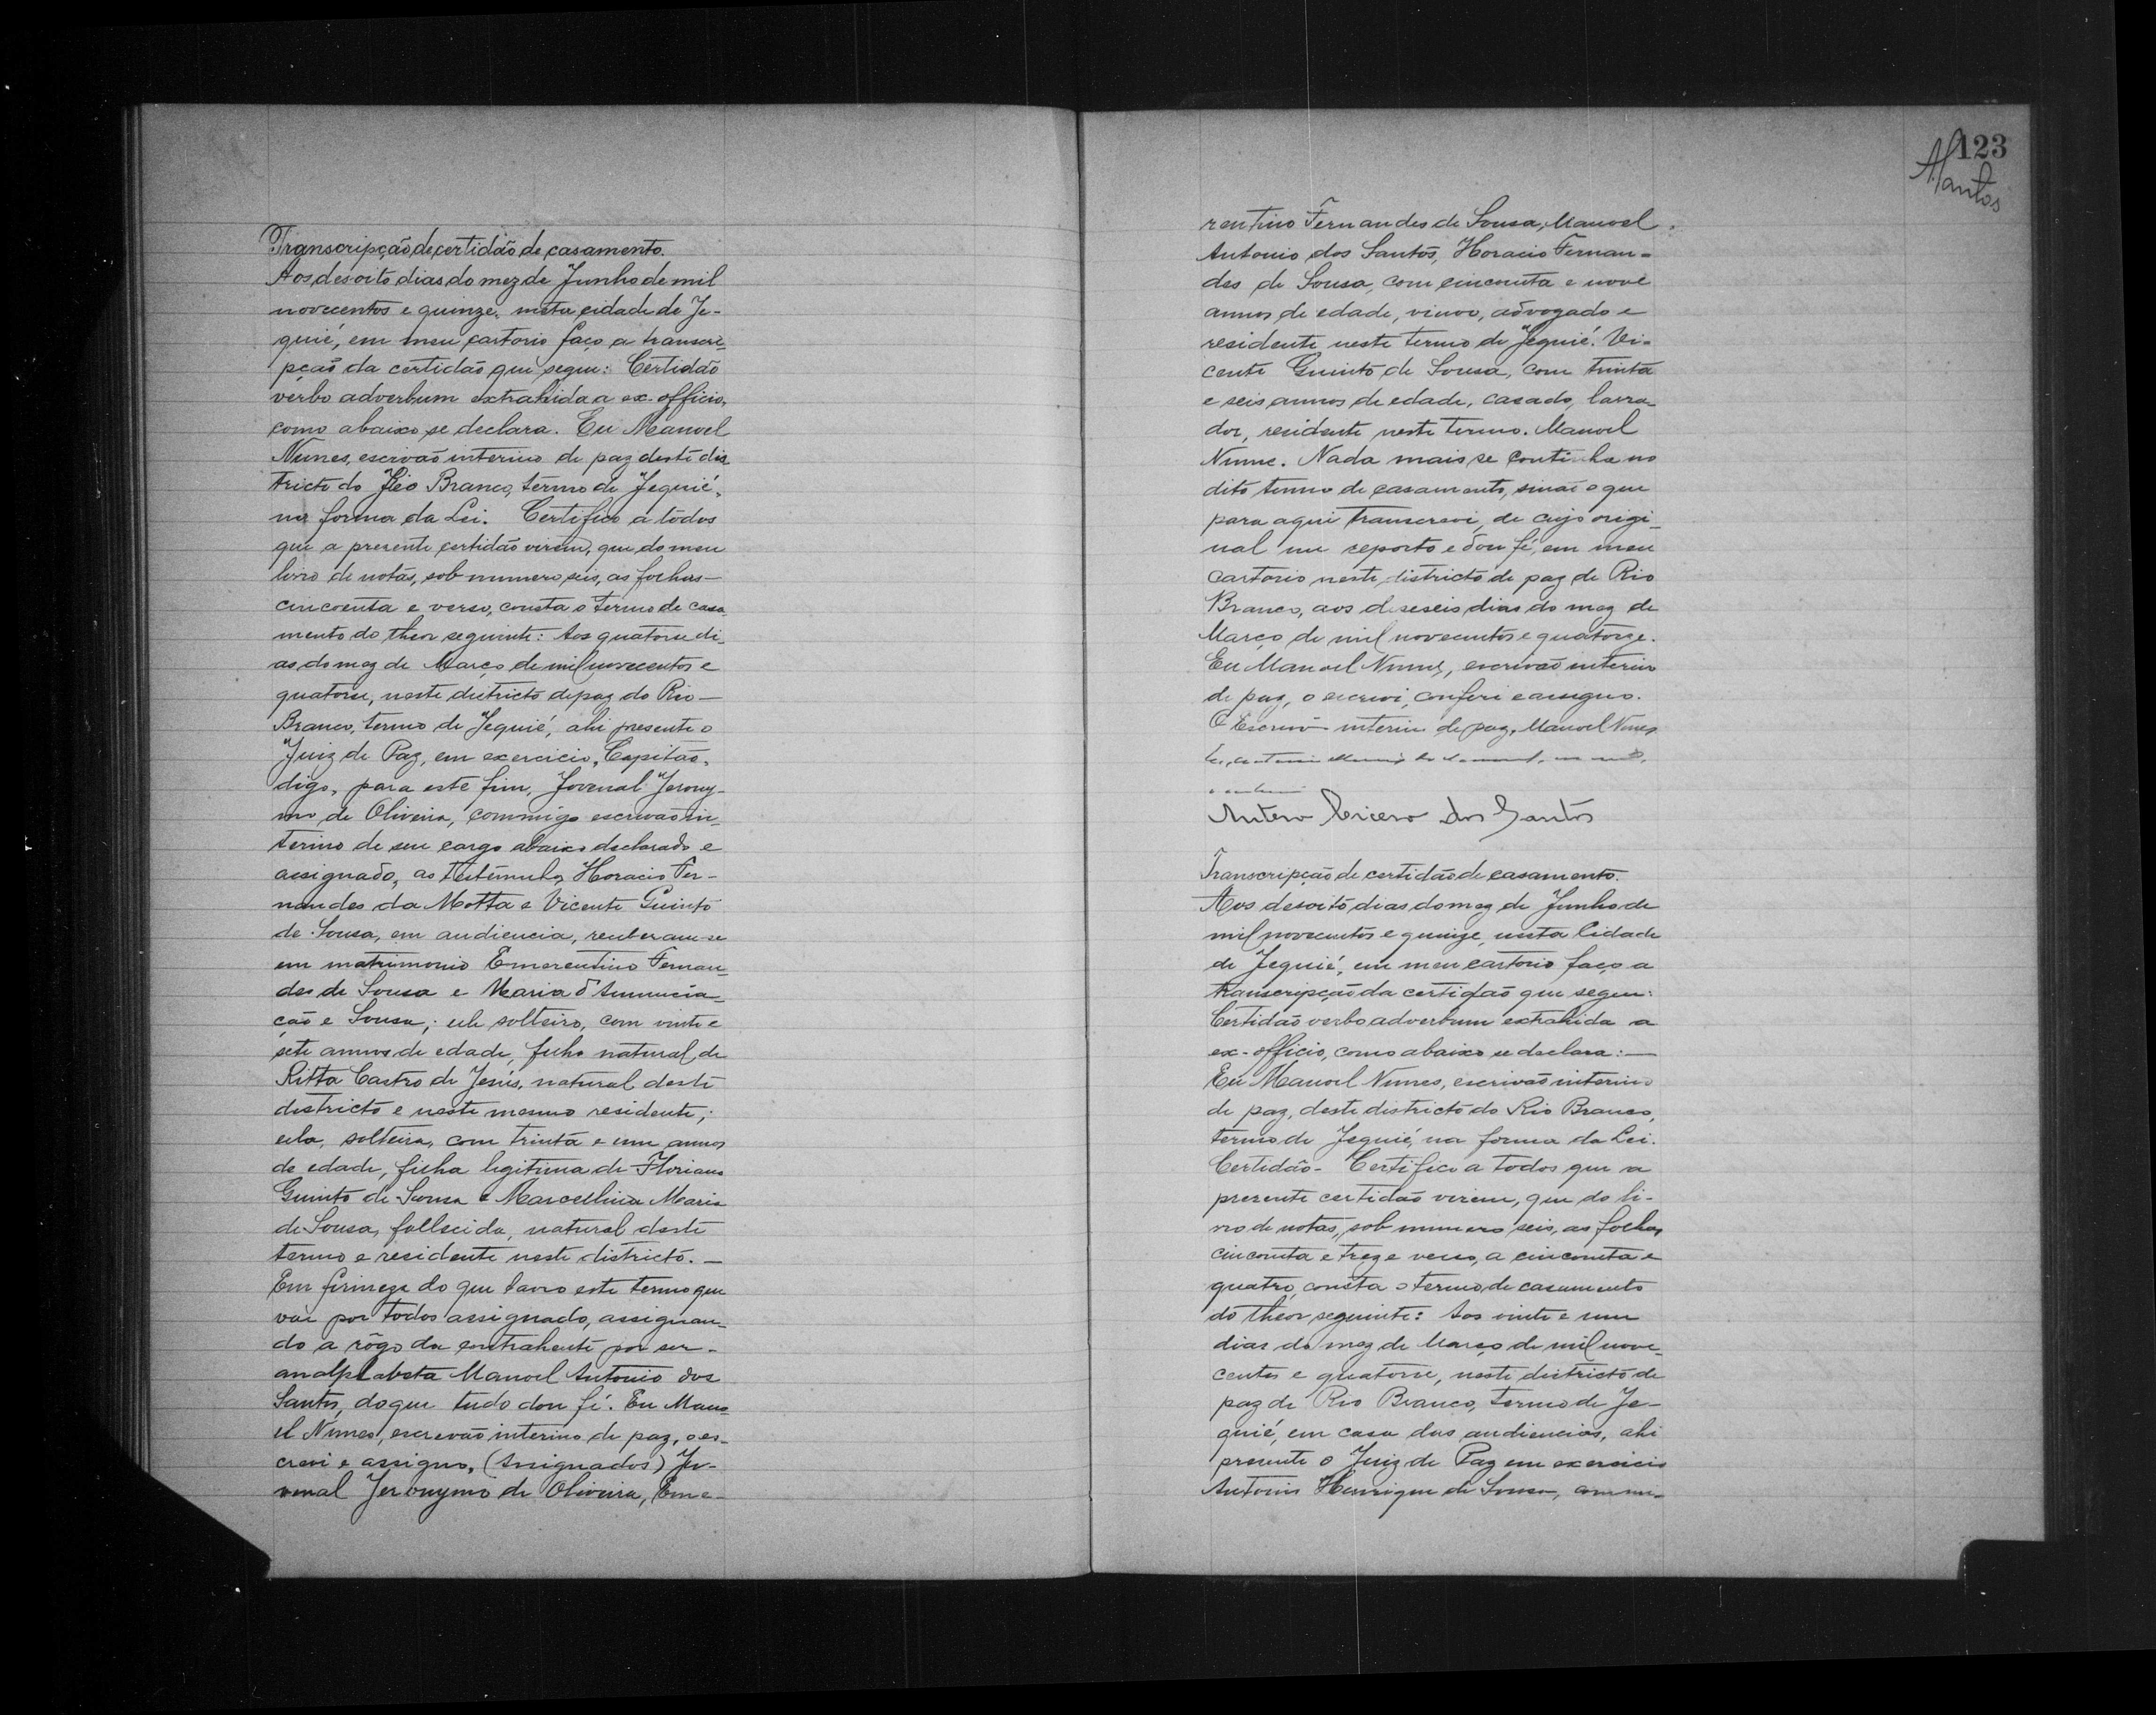 Transcripção de certidão de casamento.
Aos desoito dias do mez de Junho de mil
novecentos e quinze, nesta cidade de Je-
quié, em meu cartorio faço a transcri-
pção da certidão que segue: Certidão
verbo adverbum extrahida a ex-officio,
como abaixo se declara. Eu Manoel
Nunes, escrivão interino de paz deste dis
tricto do Rio Branco, termo de Jequié,
na forma da Lei. Certifico a todos
que a presente certidão virem, que do meu
livro de notas, sob numero seis, as folhas—
cincoenta e verso, consta o termo de casa
mento do theor seguinte: Aos quatorse di-
as do mez de Março de mil novecentos e
quatorse, neste districto de paz do Rio—
Branco, termo de Jequié, ahi presente o
Juiz de Paz, em exercicio, Capitão,
digo, para este fim, Jovenal Jerony-
mo de Oliveira, commigo escrivão in-
terino de seu cargo abaixo declarado e
assignado, as testemunhas Horacio Fer-
nandes da Motta e Vicente Guinto
de Sousa, em audiencia, receberam-se
em matrimonio Emerentino Fernan-
des de Sousa e Maria d'Annuncia-
ção e Sousa; elle solteiro, com vinte e
sete annos de edade, filho natural de
Ritta Castro de Jesús, natural deste
districto e neste mesmo residente;
ella, solteira, com trinta e um annos
de edade, filha legitima de Floriano
Guinto de Sousa e Marcellina Maria
de Sousa, fallecida, natural deste
termo e residente neste districto.—
Em firmeza do que lavro este termo que
vai por todos assignado, assignan-
do a rôgo da contrahente por ser-
analphabeta Manoel Antonio dos
Santos, do que tudo dou fé. Eu Mano
el Nunes, escrevão interino de paz, o es-
crevi e assigno, (Assignados) Jo-
venal Jeronymo de Oliveira, Eme-
123
rentino Fernandes de Sousa, Manoel
Antonio dos Santos, Horacio Fernan-
des de Sousa, com cincoenta e nove
annos de edade, viuvo, advogado e
residente neste termo de Jequié. Vi-
cente Guinto de Sousa, com trinta
e seis annos de edade, casado, lavra-
dor, residente neste termo. Manoel
Nunes. Nada mais se continha no
dito termo de casamento, sinão o que
para aqui transcrevi, de cujo origi-
nal me reporto e dou fé, em meu
cartorio neste districto de paz de Rio
Branco, aos deseseis dias do mez de
Março de mil novecentos e quatorze.
Eu Manoel Nunes, escrivão interino
de paz, o escrevi, conferi e assigno.
O Escrivão interino de paz, Manoel Nunes
Antero Cicero dos Santos
Transcripção de certidão de casamento.
Aos desoito dias do mez de Junho de
mil novecentos e quinze, nesta Cidade
de Jequié, em meu cartorio faço a
transcripção da certidão que segue:
Certidão verbo adverbum extrahida a
ex-officio, como abaixo se declara:—
Eu Manoel Nunes, escrivão interino
de paz, deste districto do Rio Branco,
termo de Jequié, na forma da Lei.
Certidão- Certifico a todos que a
presente certidão virem, que do li-
vro de notas, sob numero seis, as folhas
cincoenta e treze verso, a cincoenta e
quatro, consta o termo de casamento
do theor seguinte: Aos vinte e um
dias do mez de Março de mil nove-
centos e quatorse, neste districto de
paz de Rio Branco, termo de Je-
quié, em casa das audiencias, ahi
presente o Juiz de Paz em exercicio
Antonio Henrique de Sousa, comm-